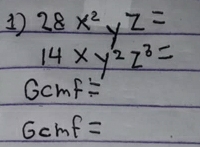 1) 28 x² y z =
14 x y² z³ =
Gcmf =
Gcmf =